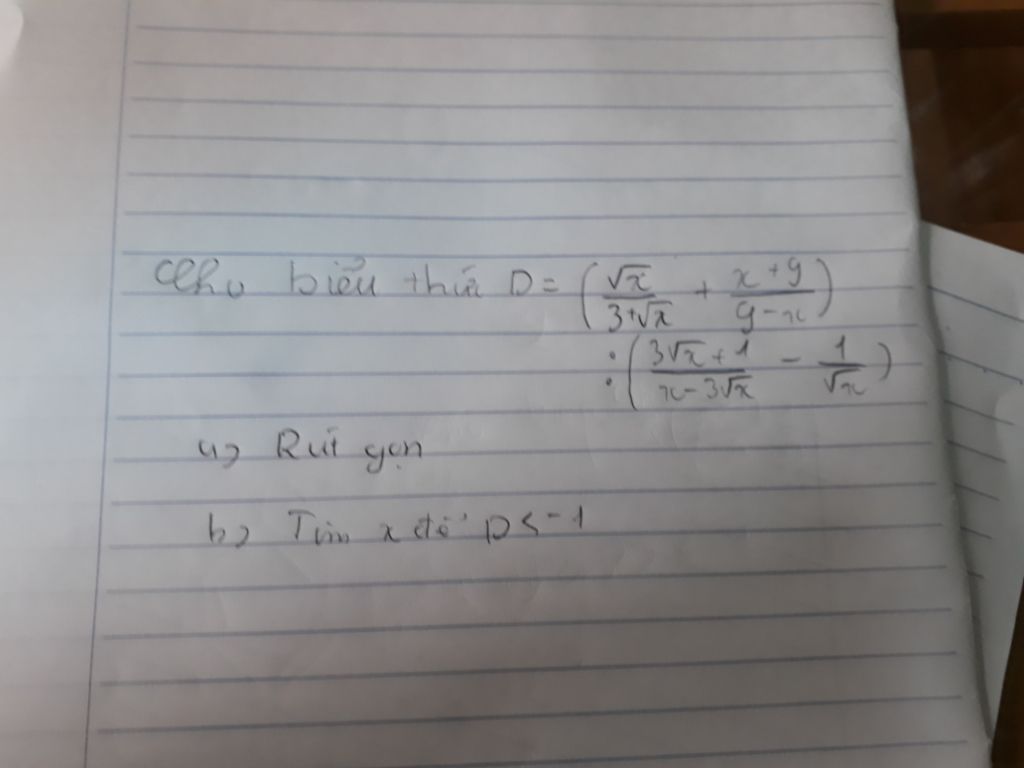 Cho biểu thức D = (√x/(3+√x) + (x+9)/(9-x))
: ((3√x+1)/(x-3√x) - 1/√x)
a) Rút gọn
b) Tìm x để D < -1